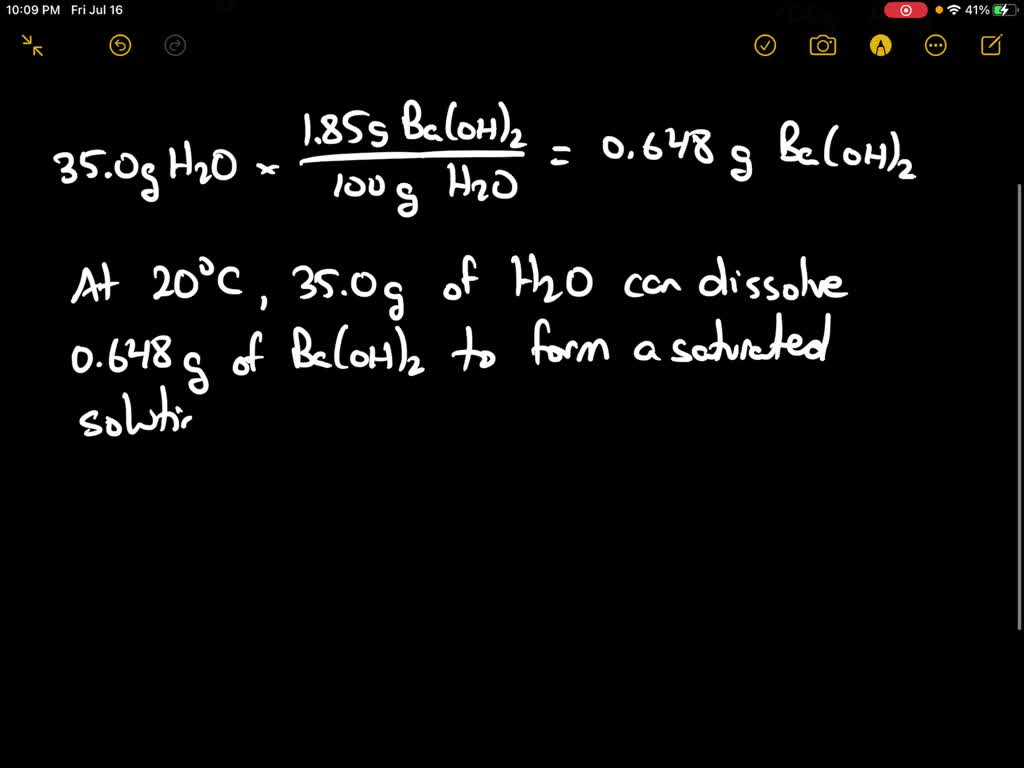 10:09 PM Fri Jul 16 41%
35.0g H2O × 1.85g Ba(OH)2 / 100g H2O = 0.648 g Ba(OH)2
At 20°C, 35.0g of H2O can dissolve
0.648g of Ba(OH)2 to form a saturated
solutio